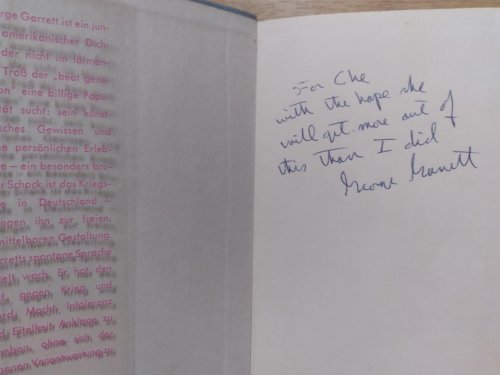 rge Garrett ist ein jun-
amerikanischer Dich-
der nicht im lärmen-
Troß der „beat gene-
on" eine billige Popu-
tät sucht: sein künst-
sches Gewissen und
ne persönlichen Erleb-
e – ein besonders bru-
r Schock ist das Kriegs-
g in Deutschland –
ngen ihn zur freien,
mittelbaren Gestaltung.
rretts spontane Sprache
elt wach. Er hat den
gegen Krieg und
Macht, Intoleranz
d Eitelkeit Anklage zu
heben, ohne sich der
enen Verantwortung zu
For Che
with the hope she
will get more out of
this than I did
George Garrett